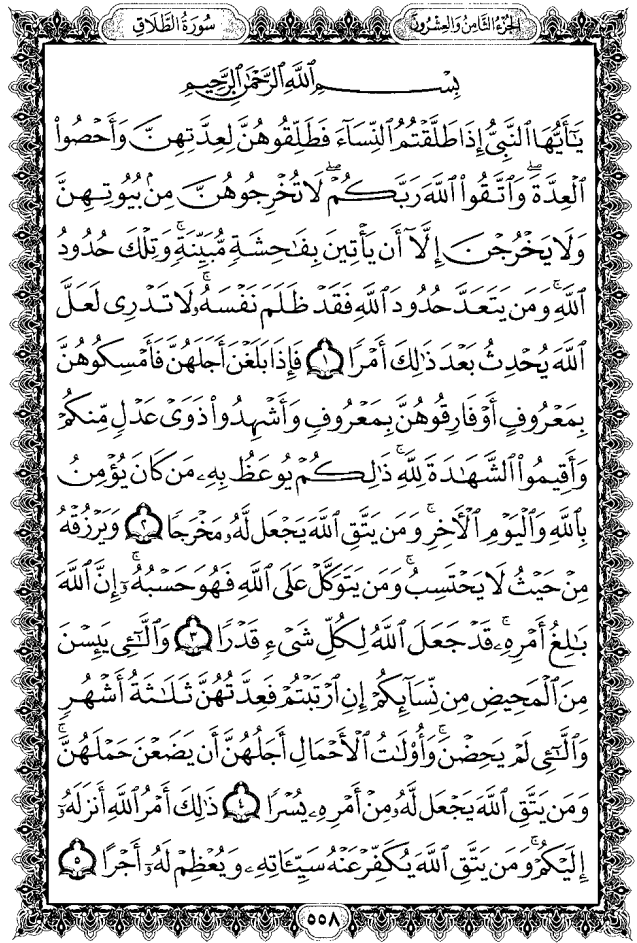 الجزء الثامن والعشرون
سورة الطلاق
بِسْمِ ٱللَّهِ ٱلرَّحْمَٰنِ ٱلرَّحِيمِ
يَٰٓأَيُّهَا ٱلنَّبِيُّ إِذَا طَلَّقْتُمُ ٱلنِّسَآءَ فَطَلِّقُوهُنَّ لِعِدَّتِهِنَّ وَأَحْصُوا۟
ٱلْعِدَّةَ ۖ وَٱتَّقُوا۟ ٱللَّهَ رَبَّكُمْ ۖ لَا تُخْرِجُوهُنَّ مِنۢ بُيُوتِهِنَّ
وَلَا يَخْرُجْنَ إِلَّآ أَن يَأْتِينَ بِفَٰحِشَةٍ مُّبَيِّنَةٍ ۚ وَتِلْكَ حُدُودُ
ٱللَّهِ ۚ وَمَن يَتَعَدَّ حُدُودَ ٱللَّهِ فَقَدْ ظَلَمَ نَفْسَهُۥ ۚ لَا تَدْرِى لَعَلَّ
ٱللَّهَ يُحْدِثُ بَعْدَ ذَٰلِكَ أَمْرًا ١ فَإِذَا بَلَغْنَ أَجَلَهُنَّ فَأَمْسِكُوهُنَّ
بِمَعْرُوفٍ أَوْ فَارِقُوهُنَّ بِمَعْرُوفٍ وَأَشْهِدُوا۟ ذَوَىْ عَدْلٍ مِّنكُمْ
وَأَقِيمُوا۟ ٱلشَّهَٰدَةَ لِلَّهِ ۚ ذَٰلِكُمْ يُوعَظُ بِهِۦ مَن كَانَ يُؤْمِنُ
بِٱللَّهِ وَٱلْيَوْمِ ٱلْءَاخِرِ ۚ وَمَن يَتَّقِ ٱللَّهَ يَجْعَل لَّهُۥ مَخْرَجًا ٢ وَيَرْزُقْهُ
مِنْ حَيْثُ لَا يَحْتَسِبُ ۚ وَمَن يَتَوَكَّلْ عَلَى ٱللَّهِ فَهُوَ حَسْبُهُۥٓ ۚ إِنَّ ٱللَّهَ
بَٰلِغُ أَمْرِهِۦ ۚ قَدْ جَعَلَ ٱللَّهُ لِكُلِّ شَىْءٍ قَدْرًا ٣ وَٱلَّٰٓـِٔى يَئِسْنَ
مِنَ ٱلْمَحِيضِ مِن نِّسَآئِكُمْ إِنِ ٱرْتَبْتُمْ فَعِدَّتُهُنَّ ثَلَٰثَةُ أَشْهُرٍ
وَٱلَّٰٓـِٔى لَمْ يَحِضْنَ ۚ وَأُو۟لَٰتُ ٱلْأَحْمَالِ أَجَلُهُنَّ أَن يَضَعْنَ حَمْلَهُنَّ ۚ
وَمَن يَتَّقِ ٱللَّهَ يَجْعَل لَّهُۥ مِنْ أَمْرِهِۦ يُسْرًا ٤ ذَٰلِكَ أَمْرُ ٱللَّهِ أَنزَلَهُۥٓ
إِلَيْكُمْ ۚ وَمَن يَتَّقِ ٱللَّهَ يُكَفِّرْ عَنْهُ سَيِّـَٔاتِهِۦ وَيُعْظِمْ لَهُۥٓ أَجْرًا ٥
٥٥٨